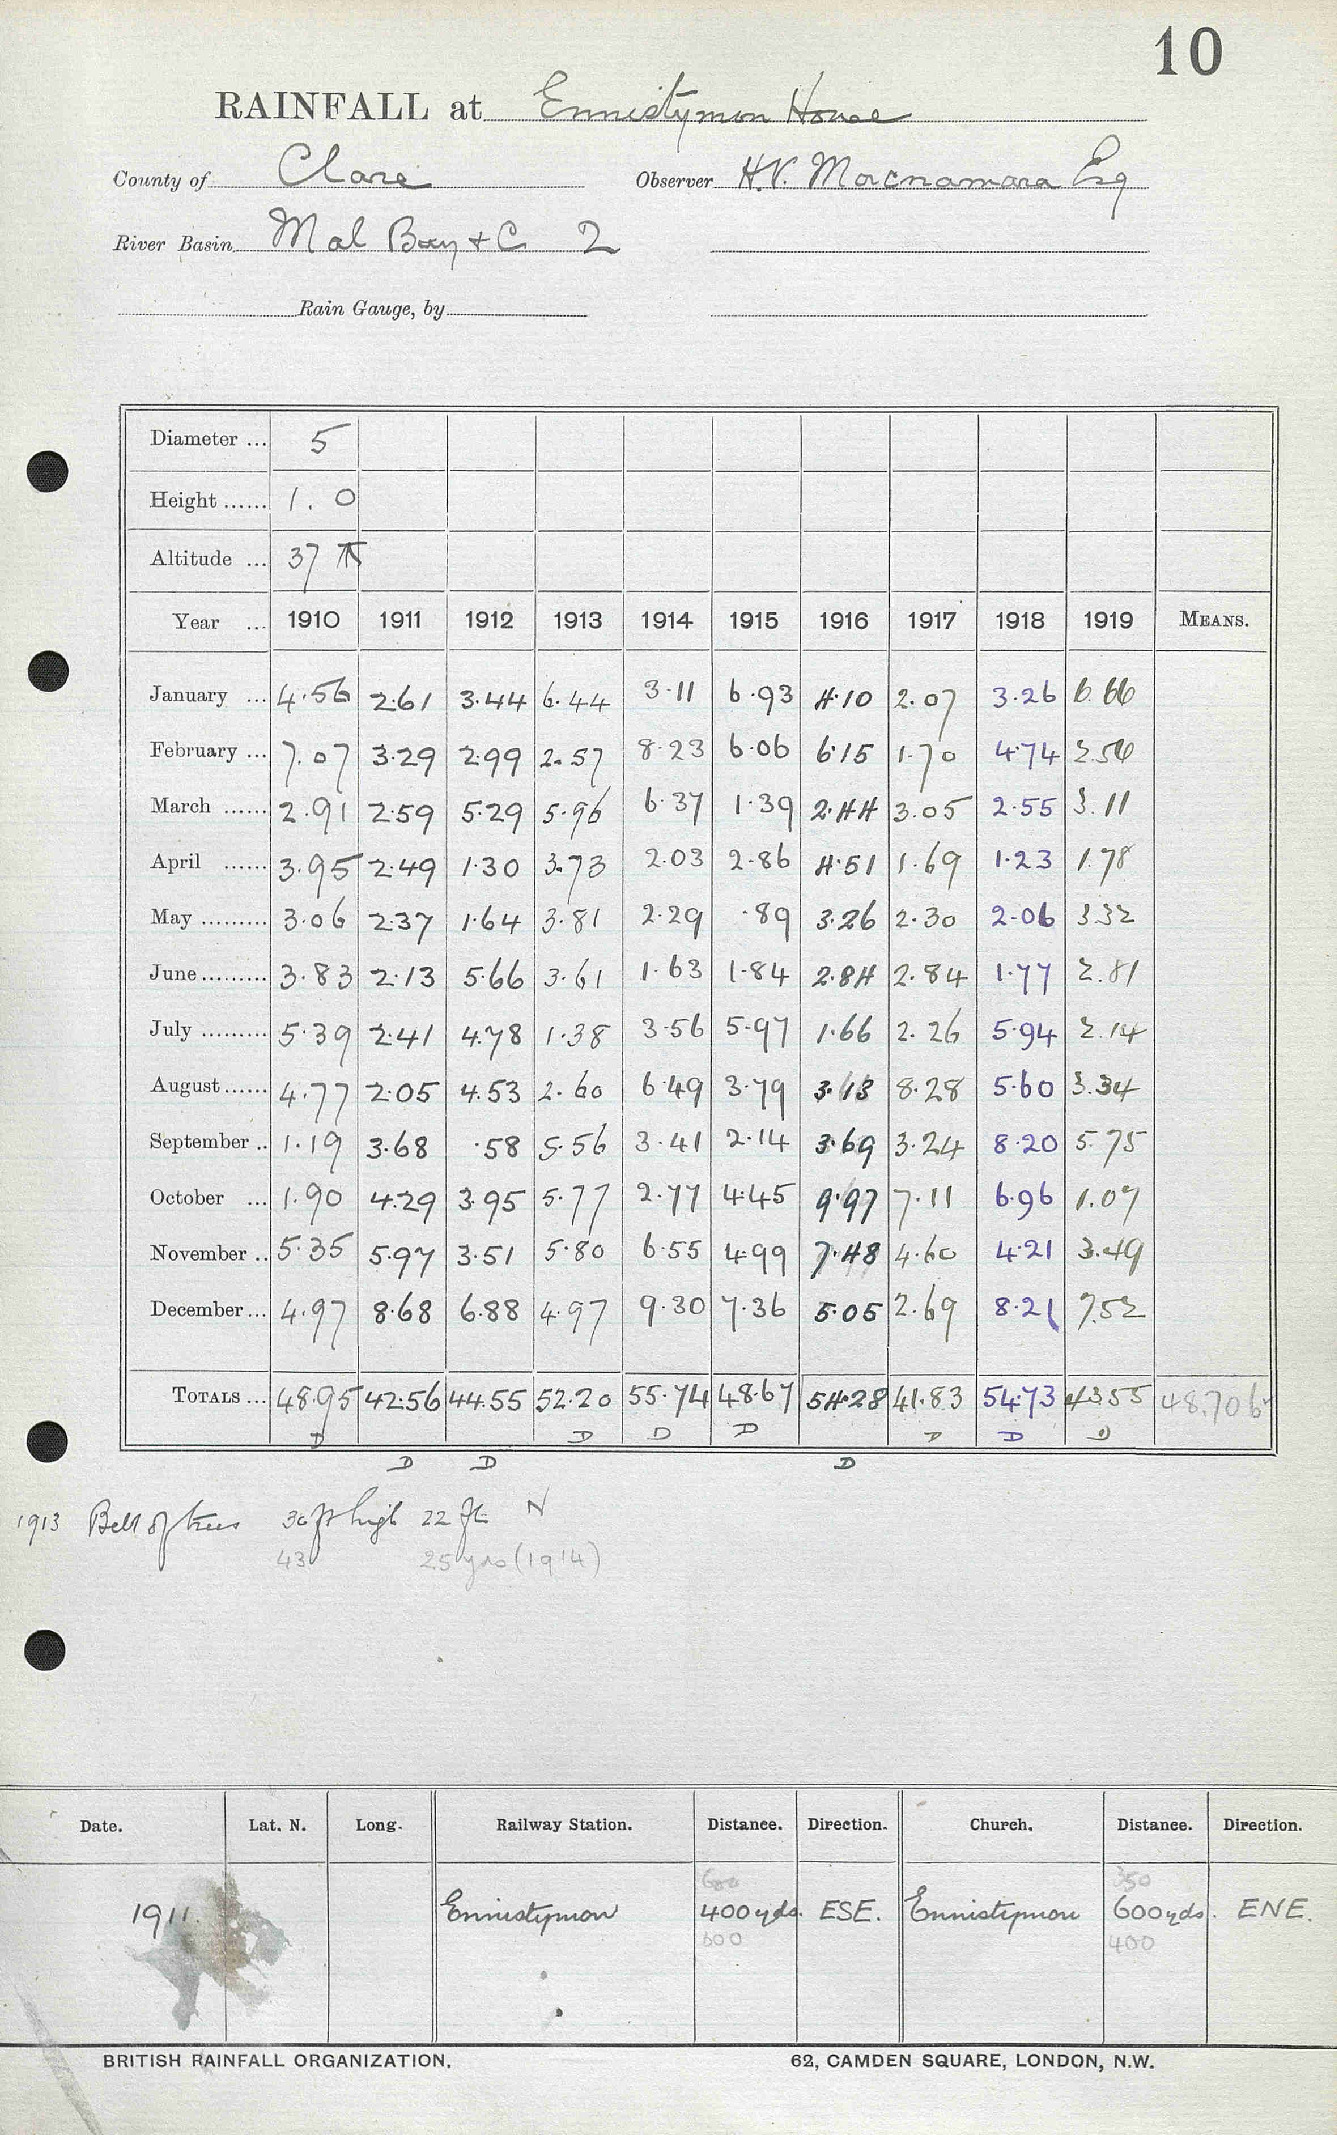 10
RAINFALL at Ennistymon House
County of Clare Observer H.V. Macnamara Esq
River Basin Mal Bay & C 2
Rain Gauge, by
Diameter ... 5
Height ...... 1. 0
Altitude ... 37
Year ... 1910 1911 1912 1913 1914 1915 1916 1917 1918 1919 MEANS.
January ... 4.56 2.61 3.44 6.44 3.11 6.93 4.10 2.07 3.26 6.66
February ... 7.07 3.29 2.99 2.57 8.23 6.06 6.15 1.70 4.74 2.56
March ...... 2.91 2.59 5.29 5.96 6.37 1.39 2.44 3.05 2.55 3.11
April ...... 3.95 2.49 1.30 3.73 2.03 2.86 4.51 1.69 1.23 1.78
May ......... 3.06 2.37 1.64 3.81 2.29 .89 3.26 2.30 2.06 3.32
June ......... 3.83 2.13 5.66 3.61 1.63 1.84 2.84 2.84 1.77 2.81
July ......... 5.39 2.41 4.78 1.38 3.56 5.97 1.66 2.26 5.94 2.14
August ...... 4.77 2.05 4.53 2.60 6.49 3.79 3.13 8.28 5.60 3.34
September .. 1.19 3.68 .58 5.56 3.41 2.14 3.69 3.24 8.20 5.75
October ... 1.90 4.29 3.95 5.77 2.77 4.45 9.97 7.11 6.96 1.07
November .. 5.35 5.97 3.51 5.80 6.55 4.99 7.48 4.60 4.21 3.49
December ... 4.97 8.68 6.88 4.97 9.30 7.36 5.05 2.69 8.21 7.52
TOTALS ... 48.95 42.56 44.55 52.20 55.74 48.67 54.28 41.83 54.73 43.55 48.706
D D D D D D D
D D D
1913 Belt of trees 36 ft high 22 ft N
43 25 yds (1914)
Date. Lat. N. Long. Railway Station. Distance. Direction. Church. Distance. Direction.
600 350
1911. Ennistymon 400 yds. ESE. Ennistymon 600 yds. ENE.
600 400
BRITISH RAINFALL ORGANIZATION. 62, CAMDEN SQUARE, LONDON, N.W.